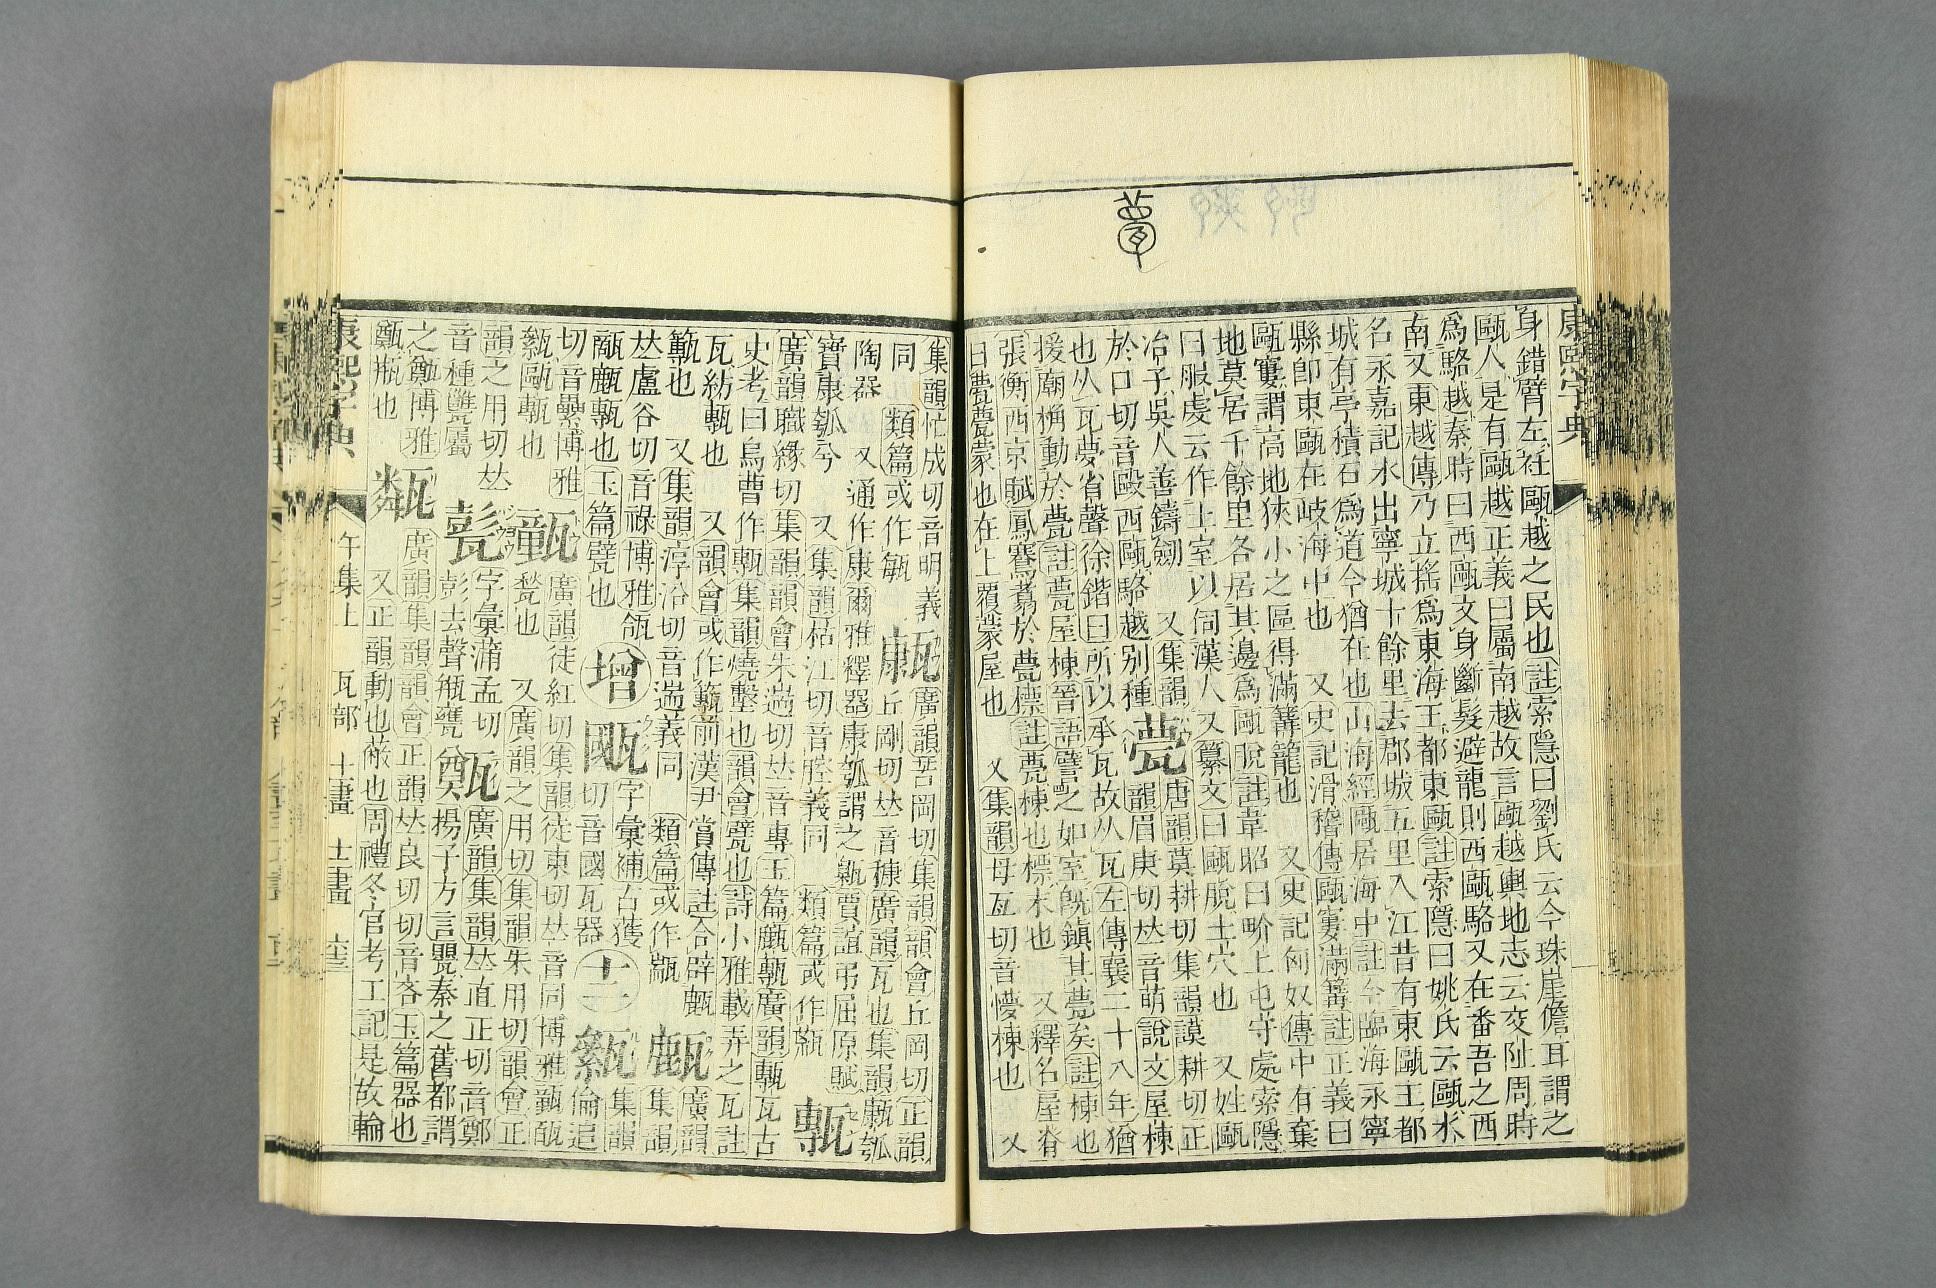 甍
康熙字典
身錯臂左衽甌越之民也註索隱曰劉氏云今珠崖儋耳謂之
甌人是有甌越正義曰屬南越故言甌越輿地志云交阯周時
爲駱越秦時曰西甌文身斷髮避龍則西甌駱又在番吾之西
南又東越傳乃立搖爲東海王都東甌註索隱曰姚氏云甌水
名永嘉記水出寧城十餘里去郡城五里入江昔有東甌王都
城有亭積石爲道今猶在也山海經甌居海中註今臨海永寧
縣卽東甌在岐海中也 又史記滑稽傳甌寠滿篝註正義曰
甌寠謂高地狹小之區得滿篝籠也 又史記匈奴傳中有棄
地莫居千餘里各居其邊爲甌脫註韋昭曰畍上屯守處索隱
曰服虔云作土室以伺漢人又纂文曰甌脫土穴也 又姓甌
冶子吳人善鑄劒 又集韻
於口切音毆西甌駱越別種 甍 唐韻莫耕切集韻謨耕切正
韻眉庚切𠀤音萌說文屋棟
也从瓦夢省聲徐鍇曰所以承瓦故从瓦左傳襄二十八年猶
援廟桷動於甍註甍屋棟晉語譬之如室旣鎮其甍矣註棟也
張衡西京賦鳳騫翥於甍標註甍棟也標末也 又釋名屋脊
曰甍甍蒙也在上覆蒙屋也 又集韻母亙切音懜棟也 又
集韻忙成切音明義
同 類篇或作㼹 甗 廣韻苦岡切集韻韻會丘岡切正韻
丘剛切𠀤音穅廣韻瓦也集韻甗瓠
陶器 又通作康爾雅釋器康瓠謂之甈賈誼弔屈原賦
寶康瓠兮 又集韻枯江切音腔義同 類篇或作㼚 甎
廣韻職緣切集韻韻會朱遄切𠀤音專玉篇甋甎廣韻甎瓦古
史考曰烏曹作甎集韻燒墼也韻會甓也詩小雅載弄之瓦註
瓦紡甎也 又韻會或作簲前漢尹賞傳註令辟甎
簲也 又集韻淳沿切音遄義同 類篇或作㼷 㼾 廣韻
集韻
𠀤盧谷切音祿博雅瓴
甋㼾甎也玉篇甓也 增 㼯 字彙補古獲
切音國瓦器 十二 㽍 集韻倫追
切音纍博雅
㽍甌甎也 㼿 廣韻徒紅切集韻徒東切𠀤音同博雅㼿瓵
甃也 又廣韻之用切集韻朱用切韻會正
韻之用切𠀤
音種甖屬 甏 字彙蒲孟切
彭去聲瓶甕 㽀 廣韻集韻𠀤直正切音鄭
揚子方言罌秦之舊都謂
之㽀博雅
㽀瓶也 甐 廣韻集韻韻會正韻𠀤良刃切音吝玉篇器也
又正韻動也敝也周禮冬官考工記是故輪
康熙字典 午集上 瓦部 十一畫 十二畫